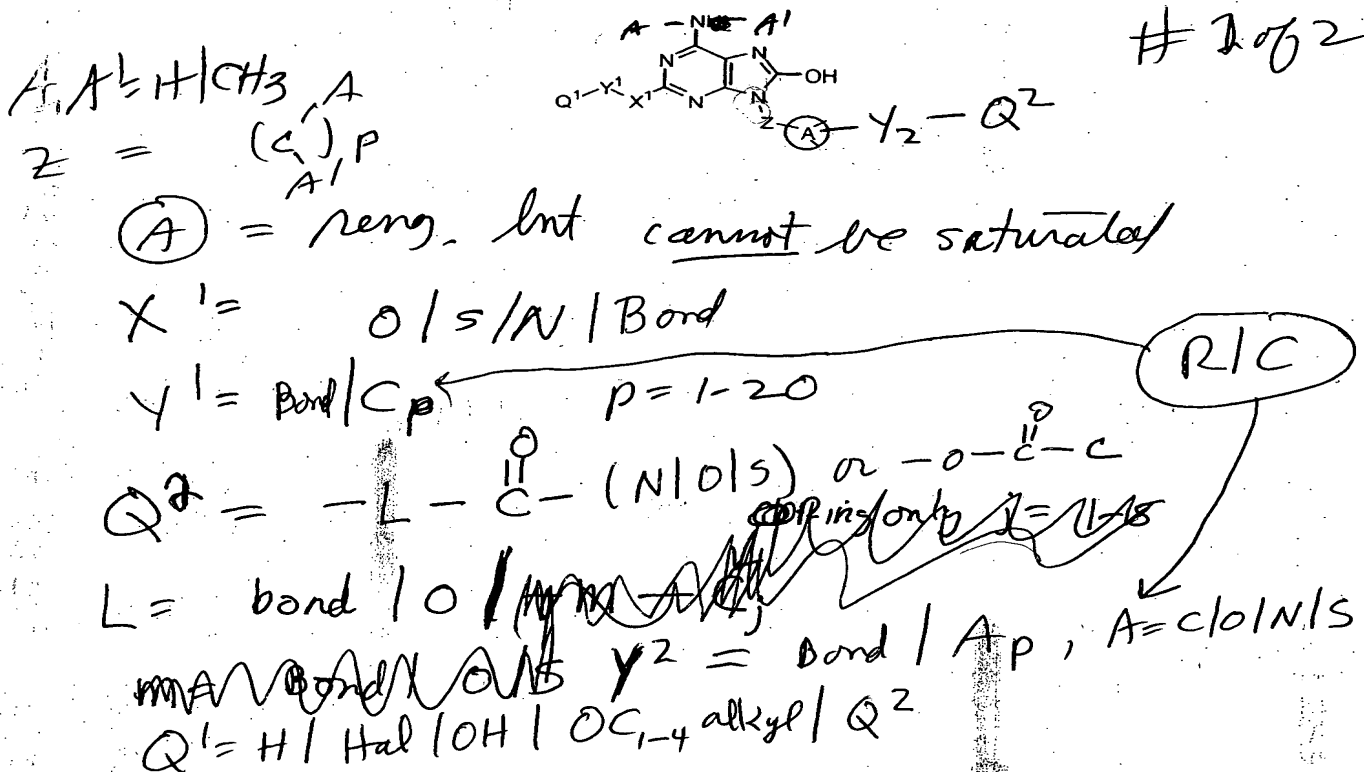 # 1 of 2
A - N - A'
N N OH
Q¹-Y¹-X¹ N N
Z - A - Y₂ - Q²
A, A' = H/CH3
Z = (C)p A A'
A = ring. but cannot be saturated
X' = O/S/N/Bond
R/C
Y' = Bond/Cp p = 1-20
Q² = -L-C(=O)-(N/O/S) or -O-C(=O)-C
L = bond / O /
Y² = Bond / Ap, A = C/O/N/S
Q' = H / Hal / OH / OC₁₋₄ alkyl / Q²